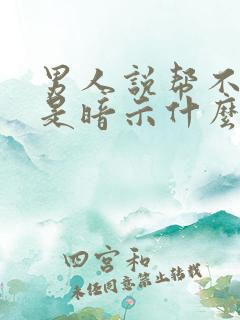 男人説帮不
是暗示什麽
四宫和
未经同意禁止转载